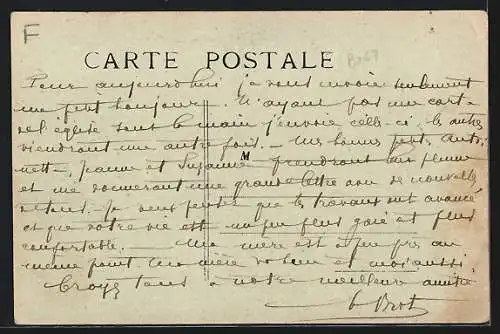 F
CARTE POSTALE
Pour aujourd'hui je vous envoie seulement
un petit bonjour. N'ayant pas une carte
de l'église sous la main j'envoie celle-ci, les autres
viendront une autre fois. — Mes bonnes petites Antoi-
nette, Jeanne et Suzanne prendront leur plume
M
et me donneront une grande lettre avec de nouvelles
de tous. Je veux penser que les travaux ont avancé
et que votre vie est un peu plus gaie et plus
confortable. — Ma mère est à peu près au
même point. Ma mère va bien et moi aussi.
Croyez tous à notre meilleure amitié
Brot